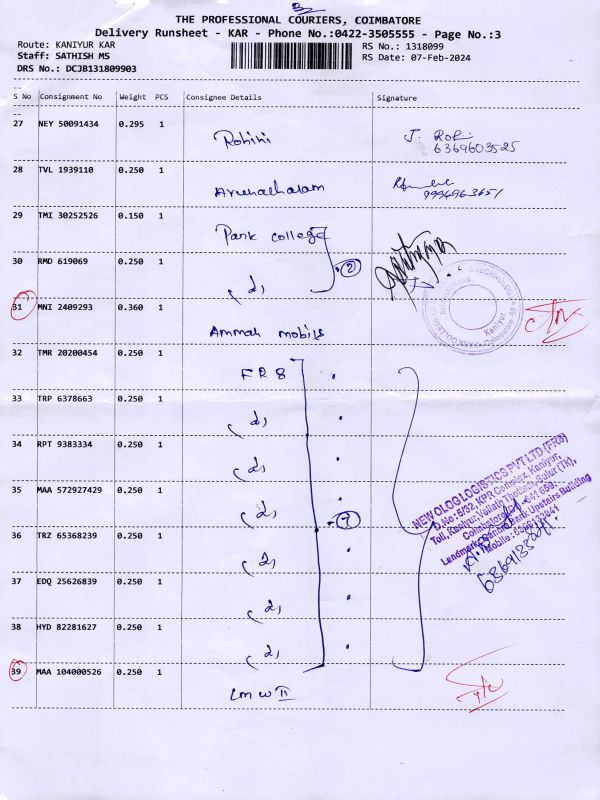 THE PROFESSIONAL COURIERS, COIMBATORE
Delivery Runsheet - KAR - Phone No.:0422-3505555 - Page No.:3
Route: KANIYUR KAR
RS No.: 1318099
Staff: SATHISH MS
RS Date: 07-Feb-2024
DRS No.: DCJB131809903
S No Consignment No Weight PCS Consignee Details Signature
27 NEY 50091434 0.295 1 Rohini J. Rohi
6369603525
28 TVL 1939110 0.250 1 Arunachalam
9994963651
29 TMI 30252526 0.150 1 Park college
30 RMD 619069 0.250 1 (2) 2
31 MNI 2409293 0.360 1 Ammah mobils
32 TMR 20200454 0.250 1 FR8
33 TRP 6378663 0.250 1 (2)
34 RPT 9383334 0.250 1 (2)
35 MAA 572927429 0.250 1 (2) 7
NEW OLOG LOGISTICS PVT LTD (FR8)
D.No: 5/32, KPR Complex, Kaniyur,
Toll, Kaniyur Village, Sulur (Tk),
Coimbatore - 641 659.
Landmark: Central Bank Upstairs Building
36 TRZ 65368239 0.250 1 (2)
37 EDQ 25626839 0.250 1 (2)
38 HYD 82281627 0.250 1 (2)
39 MAA 104000526 0.250 1 LMW II